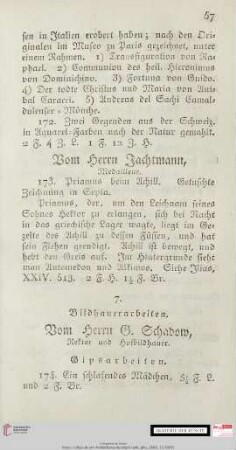 67
sen in Italien erobert haben; nach den Ori-
ginalen im Museo zu Paris gezeichnet, unter
einem Rahmen. 1) Transfiguration von Ra-
phael. 2) Communion des heil. Hieronimus
von Dominichino. 3) Fortuna von Guido.
4) Der todte Christus und Maria von Anni-
bal Caracci. 5) Andreas del Sachi Camal-
dulenser-Mönche.
172. Zwei Gegenden aus der Schweiz,
in Aquarel-Farben nach der Natur gemahlt.
2 F. 4 Z. L. 1 F. 12 Z. H.
Vom Herrn Jachtmann,
Medailleur.
173. Priamus beim Achill. Getuschte
Zeichnung in Sepia.
Priamus, der, um den Leichnam seines
Sohnes Hektor zu erlangen, sich bei Nacht
in das griechische Lager wagte, liegt im Ge-
zelte des Achill zu dessen Füssen, und hat
sein Flehen geendigt. Achill ist bewegt, und
hebt den Greis auf. Im Hintergrunde sieht
man Automedon und Alkimos. Siehe Ilias,
XXIV. 513. 2 F. H. 1½ F. Br.
7.
Bildhauerarbeiten.
Vom Herrn G. Schadow,
Rektor und Hofbildhauer.
Gipsarbeiten.
174. Ein schlafendes Mädchen. 5½ F. L.
und 2 F. Br.
AKADEMIE DER KÜNSTE